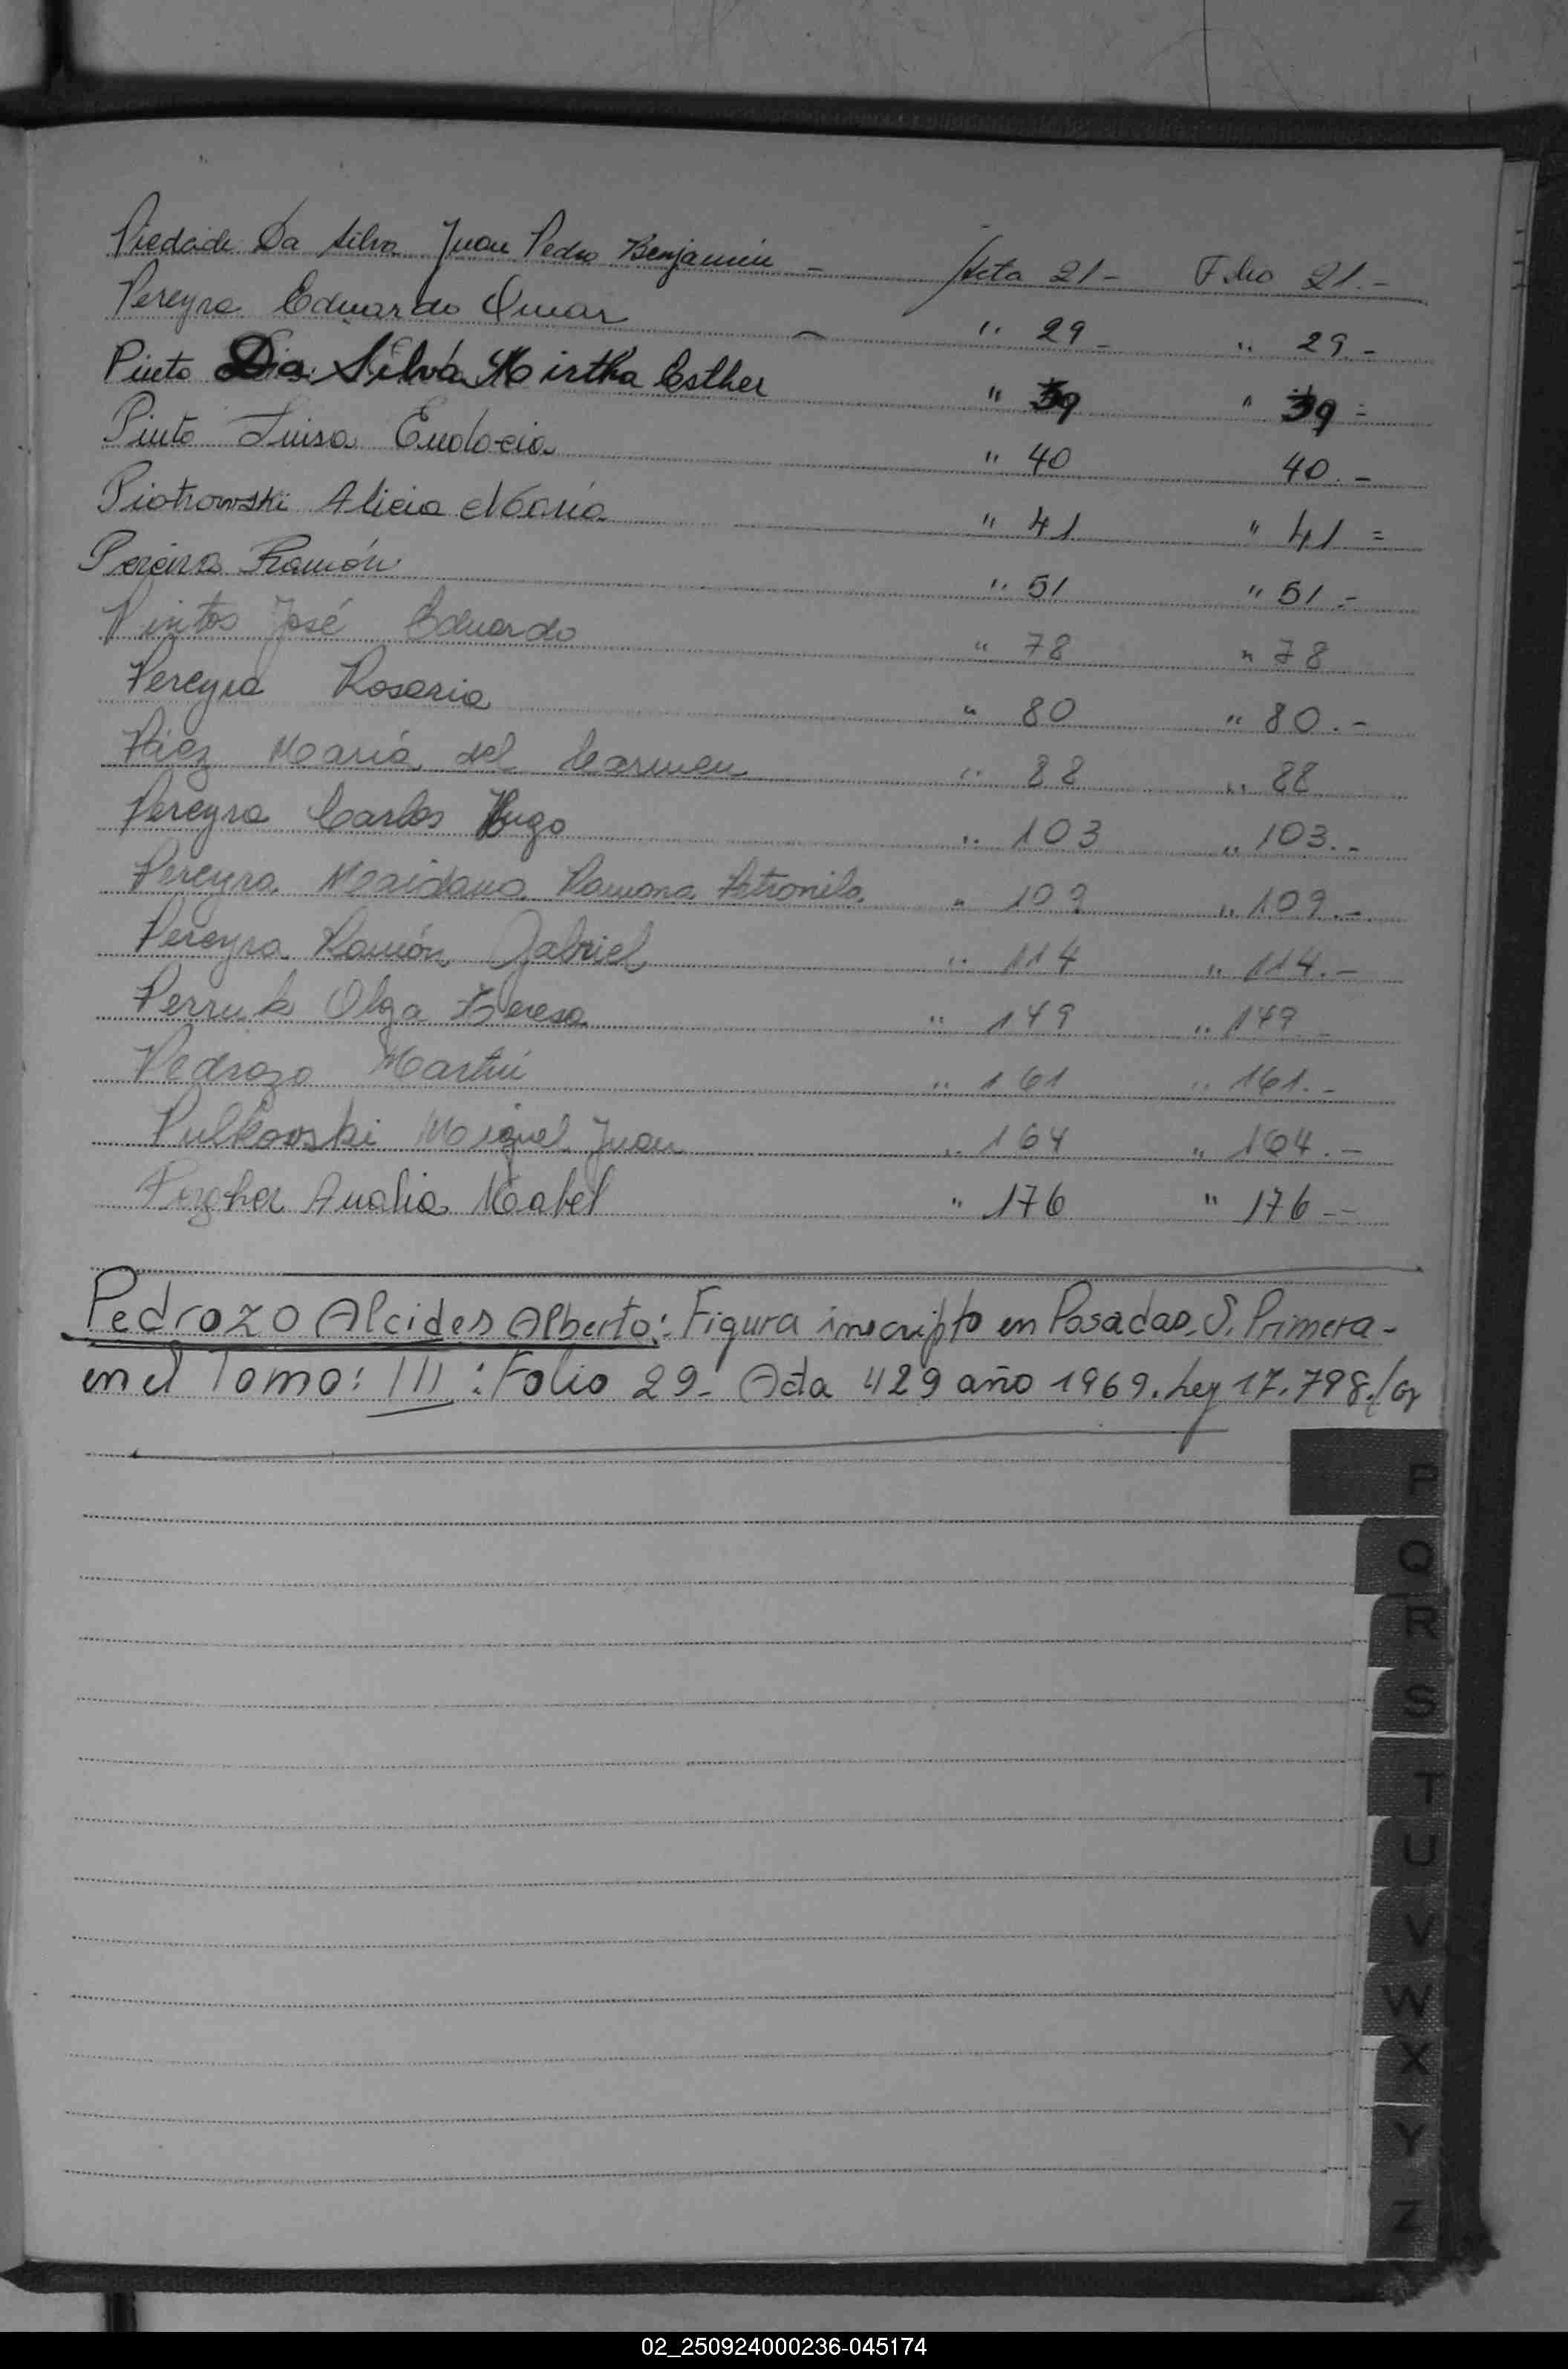 Piedade Da Silva Juan Pedro Benjamín - Acta 21- Folio 21.-
Pereyra Eduardo Omar - " 29- " 29.-
Pinto Da Silva Mirtha Esther " 39 " 39=
Pinto Luisa " 40 40.-
Piotrowski Alicia María " 41 " 41=
Pereira Ramón " 51 " 51.-
Pintos José Eduardo " 78 " 78
Pereyra Rosario " 80 " 80.-
Páez María del Carmen " 88 " 88
Pereyra Carlos Hugo " 103 " 103.-
Pereyra Maidana Ramona Petronila " 109 " 109.-
Pereyra Ramón Gabriel " 114 " 114.-
Olga Teresa " 149 " 149-
Pedrozo Martín " 161 " 161.-
Pulkovski Miguel Juan " 164 " 164.-
Analia Mabel " 176 " 176--
Pedrozo Alcides Alberto: Figura inscripto en Posadas. S. Primera-
en el Tomo: III: Folio 29- Acta 429 año 1969. Ley 17.798.
P
Q
R
S
T
U
V
W
X
Y
Z
02_250924000236-045174